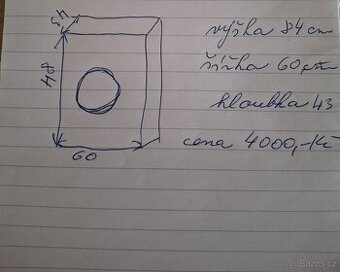 43
výška 84 cm
84
šířka 60 cm
hloubka 43
60
cena 4000,-Kč
Bazos.cz